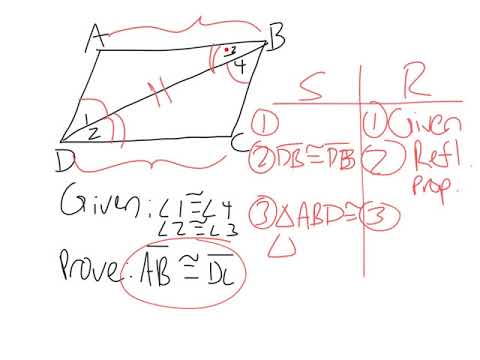 A
B
3
4
1
2
D
C
Given: ∠1≅∠4
∠2≅∠3
Prove: AB ≅ DC
S R
① ① Given
② DB≅DB ② Refl.
Prop.
③ △ABD≅ ③
△